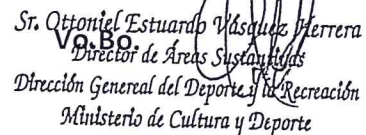 Sr. Ottoniel Estuardo Vásquez Herrera
Vo.Bo.
Director de Áreas Sustantivas
Dirección Genereal del Deporte y la Recreación
Ministerio de Cultura y Deporte